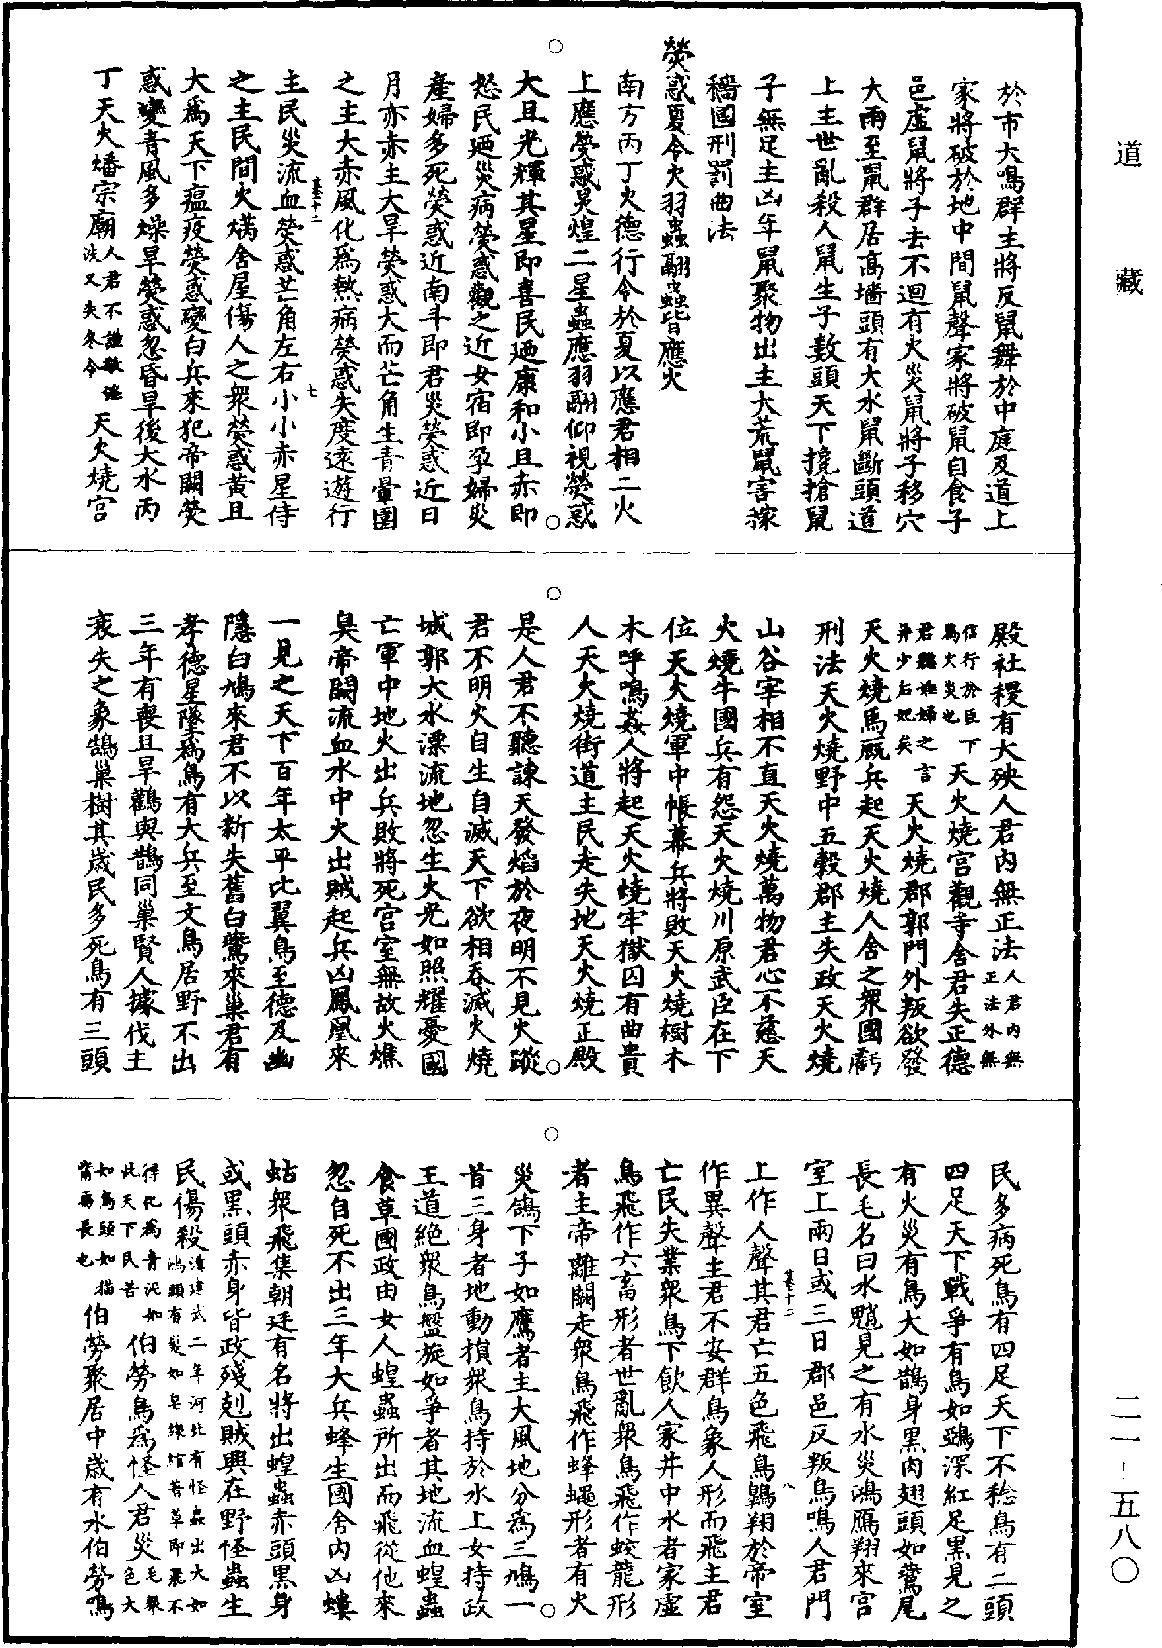 道藏
二一-五八〇
於市大鳴群主將反鼠舞於中庭及道上
家將破於地中間鼠聲家將破鼠自食子
邑虛鼠將子去不迴有火災鼠將子移穴
大雨至鼠群居高墻頭有大水鼠斷頭道
上主世亂殺人鼠生子數頭天下攙搶鼠
子無足主凶年鼠聚物出主大荒鼠害稼
穡國刑罰曲法
熒惑夏令火羽蟲翮蟲皆應火
南方丙丁火德行令於夏以應君相二火
上應熒惑炅煌二星蟲應羽翮仰視熒惑
大且光輝其星即喜民廼康和小且赤即
怒民廼災病熒惑觀之近女宿即孕婦災
產婦多死熒惑近南斗即君災熒惑近日
月亦赤主大旱熒惑大而芒角生青暈圍
之主大赤風化為熱病熒惑失度遠遊行
主民災流血熒惑芒角左右小小赤星侍
之主民間火㷄舍屋傷人之衆熒惑黃且
大為天下瘟疫熒惑變白兵來犯帝闕熒
惑變青風多燥旱熒惑忽昏旱後大水丙
丁天火燔宗廟人君不謹敬法又失冬令天火燒宮
殿社稷有大殃人君內無正法人君內無正法外無
信行於臣下為火災也天火燒宮觀寺舍君失正德
君聽姬婦之言并少后妃矣天火燒郡郭門外叛欲發
天火燒馬厩兵起天火燒人舍之衆國虧
刑法天火燒野中五穀郡主失政天火燒
山谷宰相不直天火燒萬物君心不慈天
火燒牛國兵有怨天火燒川原武臣在下
位天火燒軍中帳幕兵將敗天火燒樹木
木呼鳴姦人將起天火燒牢獄囚有曲貴
人天火燒街道主民走失地天火燒正殿
是人君不聽諫天發焰於夜明不見火蹤
君不明火自生自滅天下欲相吞滅火燒
城郭大水漂流地忽生火光如照耀憂國
亡軍中地火出兵敗將死宮室無故火燋
臭帝闕流血水中火出賊起兵凶鳳凰來
一見之天下百年太平比翼鳥至德及幽
隱白鳩來君不以新失舊白鷺來巢君有
孝德星墜為鳥有大兵至文鳥居野不出
三年有喪且旱鸛與鵲同巢賢人據伐主
衰失之象鵲巢樹其歲民多死鳥有三頭
民多病死鳥有四足天下不稔鳥有二頭
四足天下戰爭有鳥如鵶深紅足黑見之
有火災有鳥大如鵲身黑肉翅頭如鴛尾
長毛名曰水魈見之有水災鴻鴈翔來宮
室上兩日或三日郡邑反叛鳥鳴人君門
上作人聲其君亡五色飛鳥鸚翔於帝室
作異聲主君不安群鳥象人形而飛主君
亡民失業衆鳥下飲人家井中水者家虛
鳥飛作六畜形者世亂衆鳥飛作蛟龍形
者主帝離闕走衆鳥飛作蜂蠅形者有火
災鴿下子如鷹者主大風地分為三鳩一
首三身者地動損衆鳥持於水上女持政
王道絕衆鳥盤旋如爭者其地流血蝗蟲
食草國政由女人蝗蟲所出而飛從他來
忽自死不出三年大兵蜂生國舍內凶螻
蛄衆飛集朝廷有名將出蝗蟲赤頭黑身
或黑頭赤身皆政殘剋賊興在野怪蟲生
民傷殺漢建武二年河北有怪蟲出大如鴻頭有髮如皂線綰若草即衆不
得化為青泥如此天下民苦伯勞鳥為怪人君災毛衆色大
如鳥頭如猫肖兩長也伯勞聚居中歲有水伯勞鳴